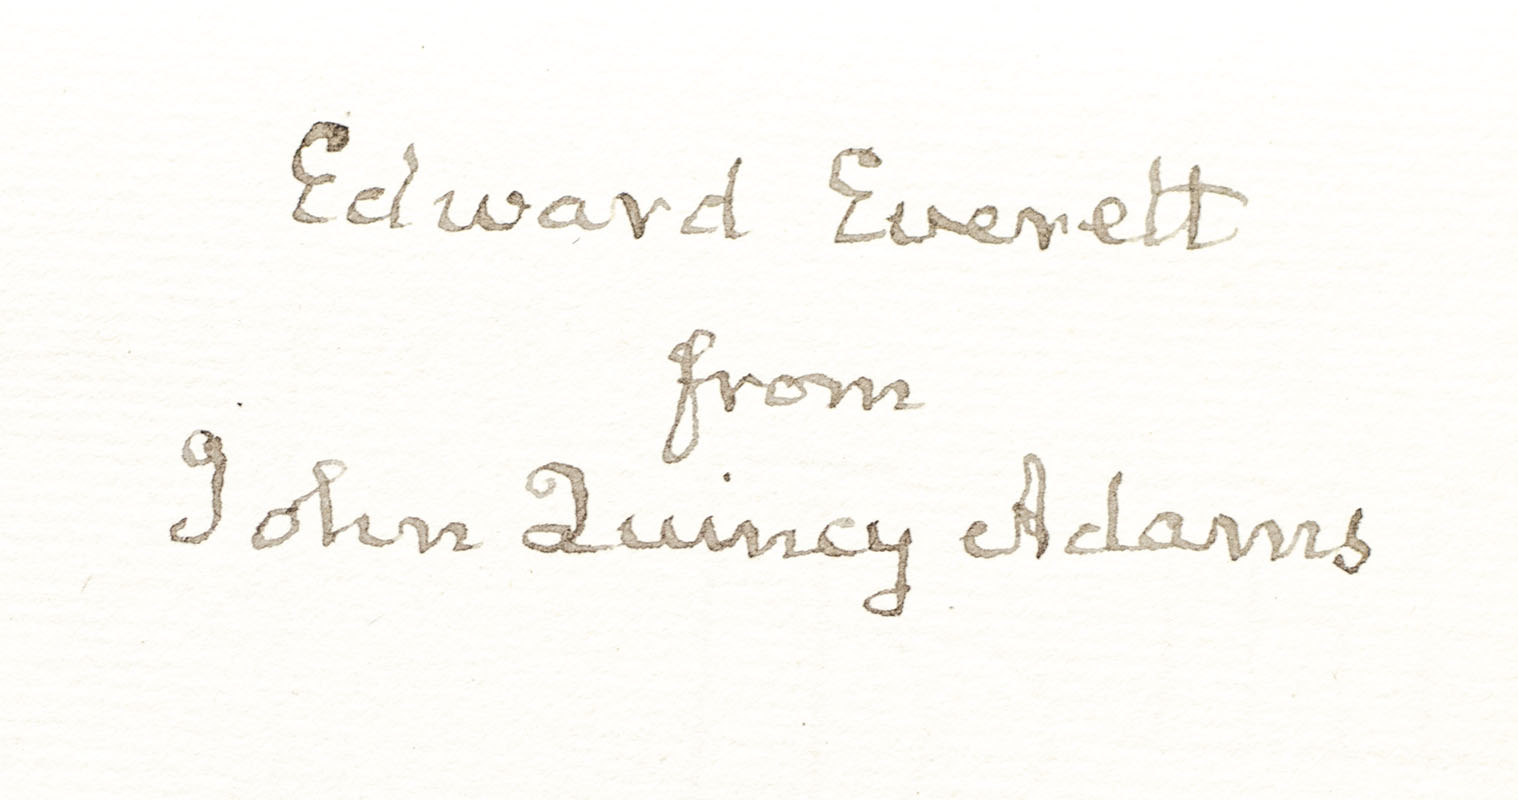 Edward Everett
from
John Quincy Adams